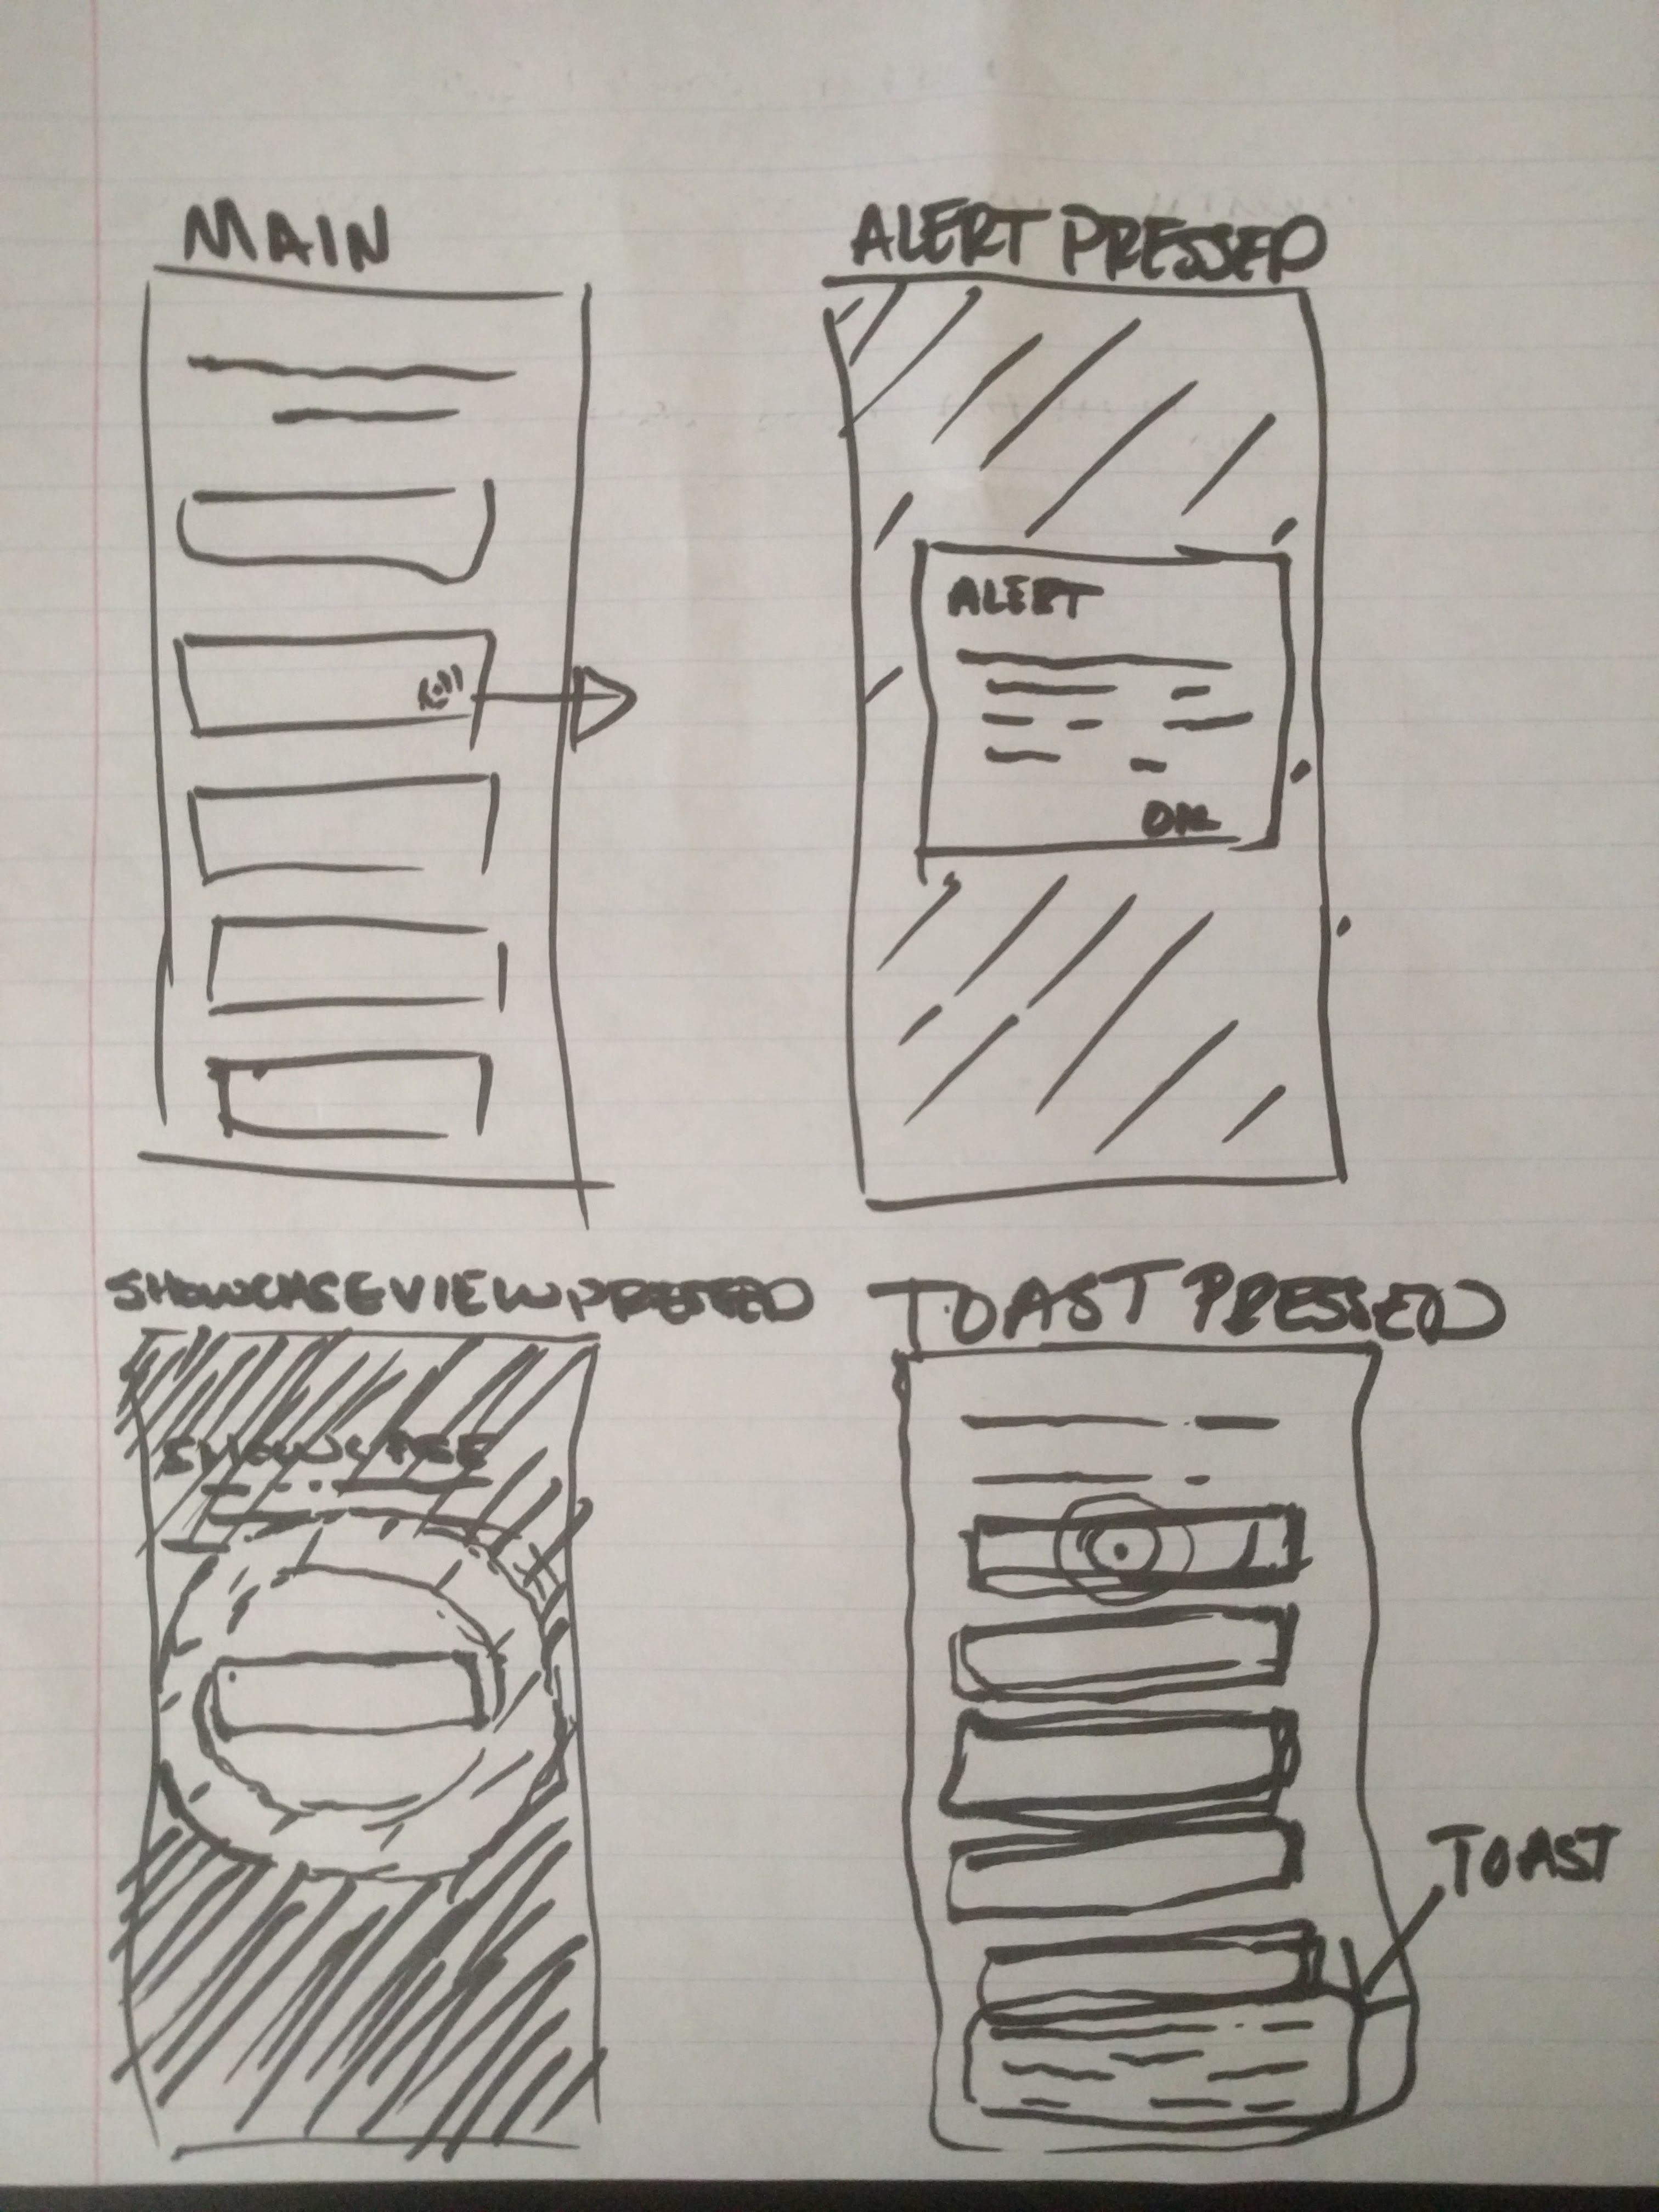 MAIN
ALERT PRESSED
ALERT
OK
SHOWCASEVIEW PRESSED
SHOWCASE
TOAST PRESSED
TOAST